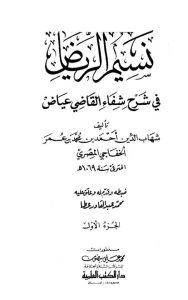 نسيم الرياض
في شرح شفاء القاضي عياض
تأليف
شهاب الدين أحمد بن محمد بن عمر
الخفاجي المصري
المتوفى سنة ١٠٦٩هـ
ضبطه وقدم له وعلق عليه
محمد عبد القادر عطا
الجزء الأول
منشورات
محمد علي بيضون
دار الكتب العلمية